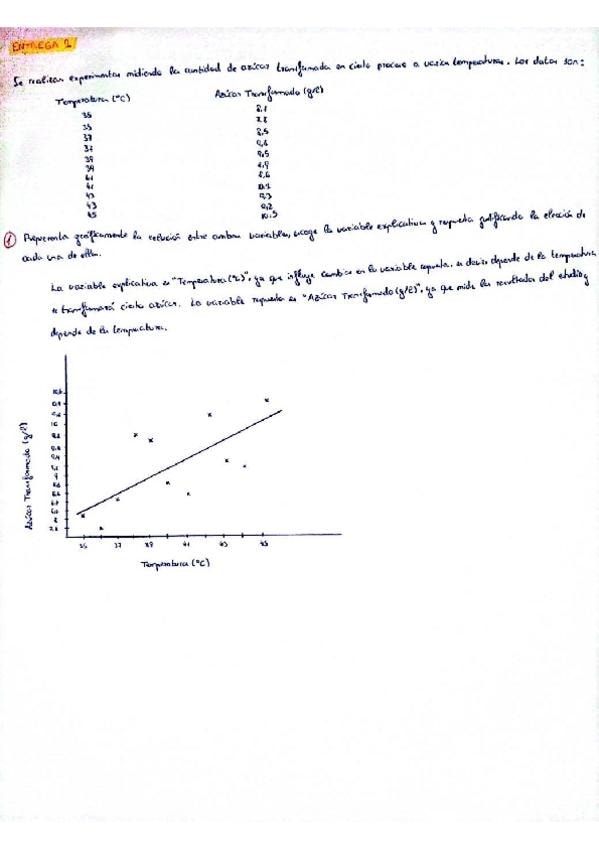 ENTREGA 2
Se realizan experimentos midiendo la cantidad de azúcar transformada en cierto proceso a varias temperaturas. Los datos son:
Temperatura (°C) Azúcar Transformado (g/l)
35 8,1
35 7,8
37 8,5
37 9,8
39 9,5
39 8,9
41 8,6
41 10,2
43 9,3
43 9,2
45 10,5
① Representa gráficamente la relación entre ambas variables, escoge la variable explicativa y respuesta justificando la elección de
cada una de ellas.
La variable explicativa es "Temperatura (°C)", ya que influye cambios en la variable respuesta. es decir depende de la temperatura
se transformará cierto azúcar. La variable respuesta es "Azúcar Transformado (g/l)", ya que mide los resultados del estudio y
depende de la temperatura.
Azúcar Transformado (g/l)
35 37 39 41 43 45
Temperatura (°C)